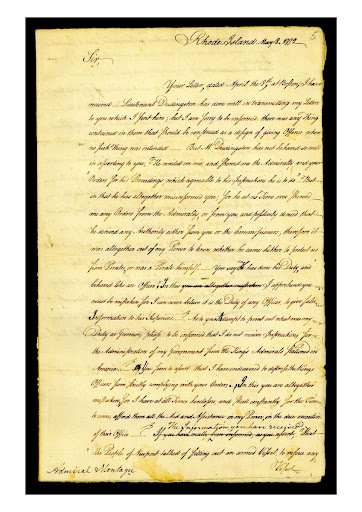 Rhode Island May 8. 1772 5
Sir,
Your Letter, dated April the 8th at Boston, I have
received. Lieutenant Dudingston has done well in transmitting my Letters
to you which I sent him; but I am sorry to be informed there was any thing
contained in them that should be construed as a design of giving Offence when
no such thing was intended. But Mr Dudingston has not behaved so well
in asserting to you, "He waited on me and shewed me the Admiralty and your
"Orders for his Proceedings, which agreeable to his Instructions he is to do" But
in that he has altogether misinformed you; for he at no Time ever shewed
me any Orders from the Admiralty or from you, and positively denied that
he derived any Authority either from you or the Commissioners, therefore it
was altogether out of my Power to know whether he came hither to protect us
from Pirates, or was a Pirate himself. You say "He has done his Duty and
behaved like an Officer", In this I apprehend you
must be mistaken for I can never believe it is the Duty of any Officer, to give false
Information to his Superiors. As to your Attempt to point out what was my
Duty as Governor, please to be informed that I do not receive Instructions for
the Administration of my Government from the Kings Admirals stationed in
America. You seem to assert that I have endeavored to distress the Kings
Officers from strictly complying with your Orders. In this you are altogether
mistaken for I have at all Times heretofore and shall constantly for the Time
to come, afford them all the Aid and Assistance in my Power, in the due execution
of their Office. "The Information you have received
That
"the People of Newport talked of fitting out an armed Vessel, to rescue any
"Vessel
Admiral Montagu